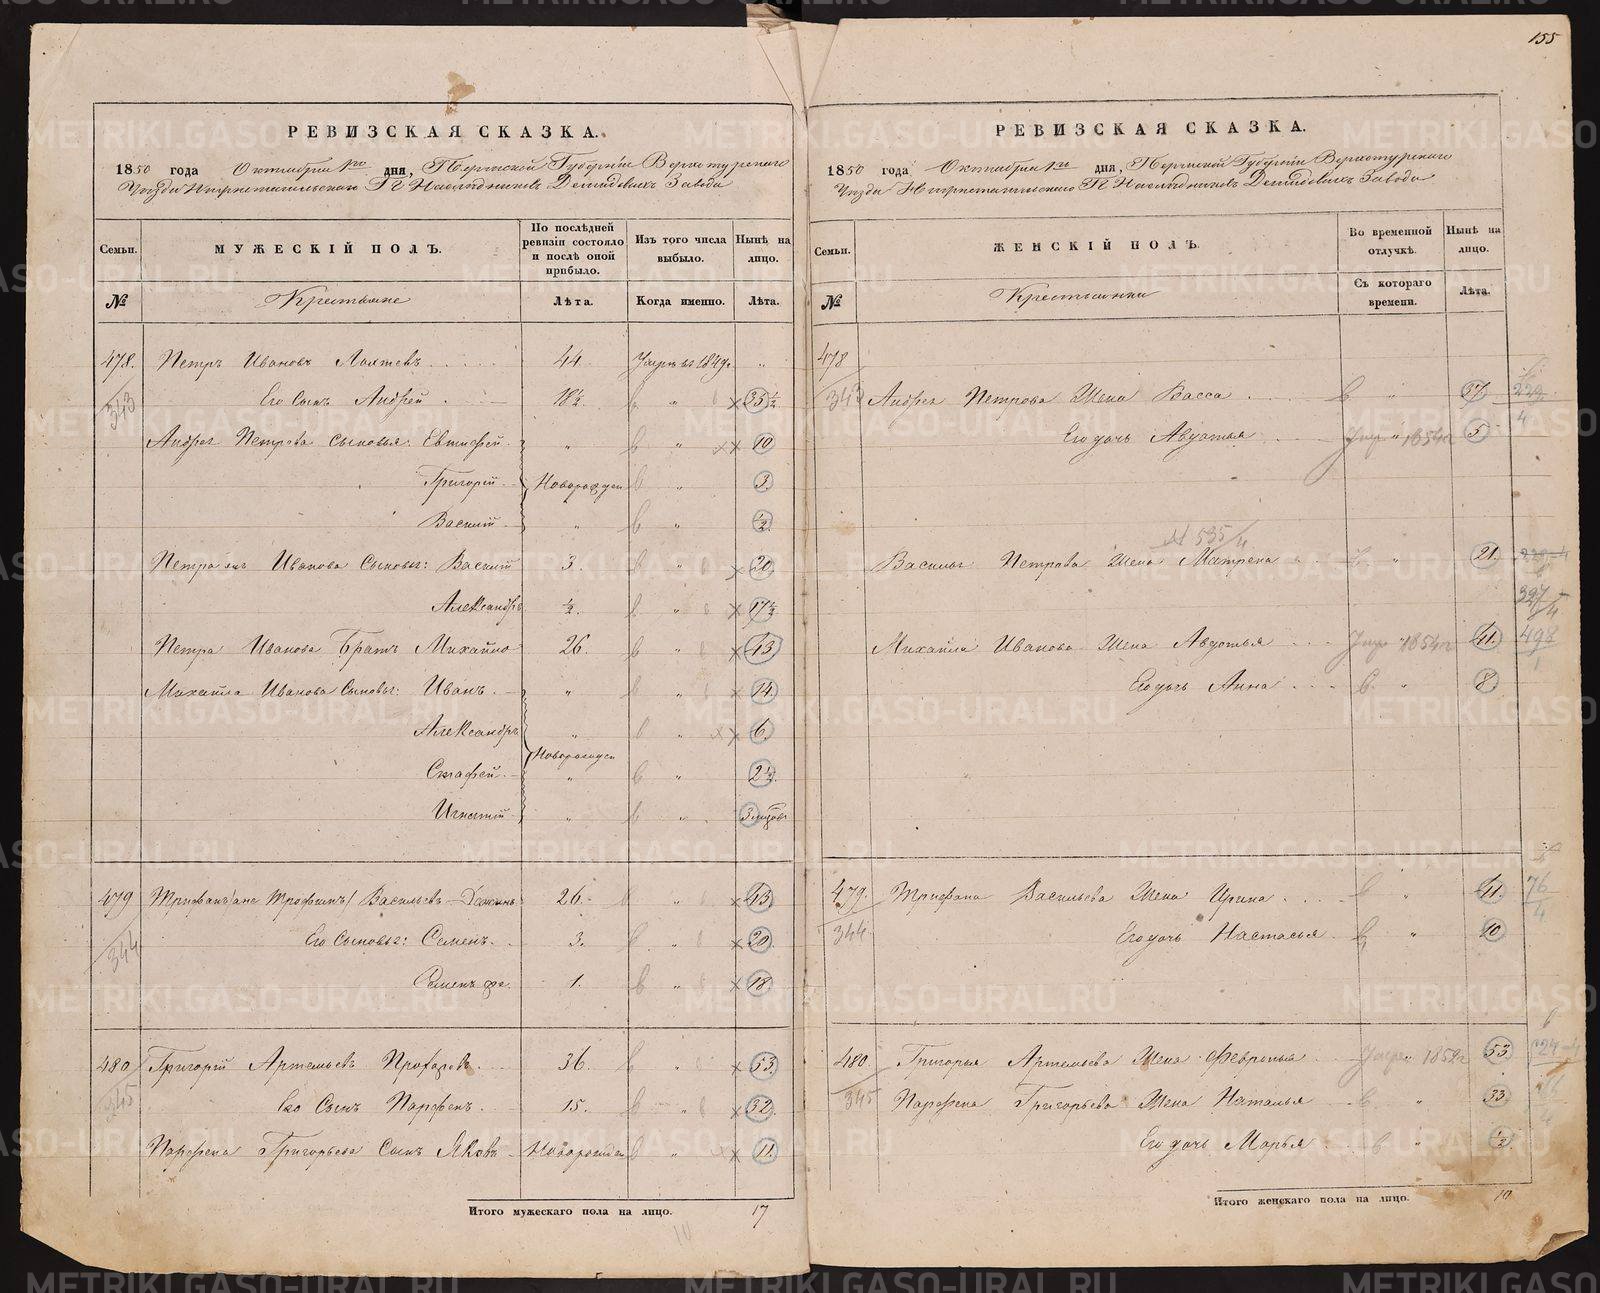 155
РЕВИЗСКАЯ СКАЗКА.
1850 года Октября 1го дня, Пермской Губерніи Верхотурскаго
Уезда Нижнетагильскаго Гг Наследниковъ Демидовыхъ Завода
Семьи. МУЖЕСКІЙ ПОЛЪ. По послѣдней ревизіи состояло и послѣ оной прибыло. Изъ того числа выбыло. Нынѣ на лицо.
№ Крестьяне Лѣта. Когда именно. Лѣта.
478. Петръ Ивановъ 44. Умре въ 1849г. "
343 Его Сынъ Андрей 18½ " 35½
Андрея Петрова сыновья: Евтифей " " 10
Григорій Новорожден " 3
Василій " " ½
Петра же Иванова Сыновья: Василій 3. " 20
Александръ ½ " 17½
Петра Иванова Братъ Михайло 26. " 43
Михайла Иванова Сыновья: Иванъ " " 14
Александръ " " 6.
Новорожден
Евтафей " " 2½
Игнатій " " 3 месяцовъ
479 Трифанъ /ане Трофимъ/ Васильевъ 26. " 43
344 Его Сыновья: Семенъ 3. " 20
Семенъ же 1. " 18
480 Григорій Артемьевъ 36. " 53
345 Его Сынъ Парфенъ 15. " 32
Парфена Григорьева Сынъ Яковъ Новорожден " 11
Итого мужескаго пола на лицо. 17
РЕВИЗСКАЯ СКАЗКА.
1850 года Октября 1го дня, Пермской Губерніи Верхотурскаго
Уезда Нижнетагильскаго Гг Наследниковъ Демидовыхъ Завода
Семьи. ЖЕНСКІЙ ПОЛЪ. Во временной отлучкѣ. Нынѣ на лицо.
№ Крестьянки Съ котораго времени. Лѣта.
478
343 Андрея Петрова Жена Васса " 37
Его дочь Авдотья Умр " 1854г 5
№ 535/4
Василья Петрова Жена Матрена " 21.
397/4
Михайла Иванова Жена Авдотья Умре 1854г 41. 498/1
Его дочь Анна " 8
479. Трифана Васильева Жена Ирина " 41. 76/4
344 Его дочь Настасья " 10
480. Григорья Артемьева Жена Февронья Умре 1852г 53.
345 Парфена Григорьева Жена Наталья " 33
Его дочь Марья " ½
Итого женскаго пола на лицо. 10